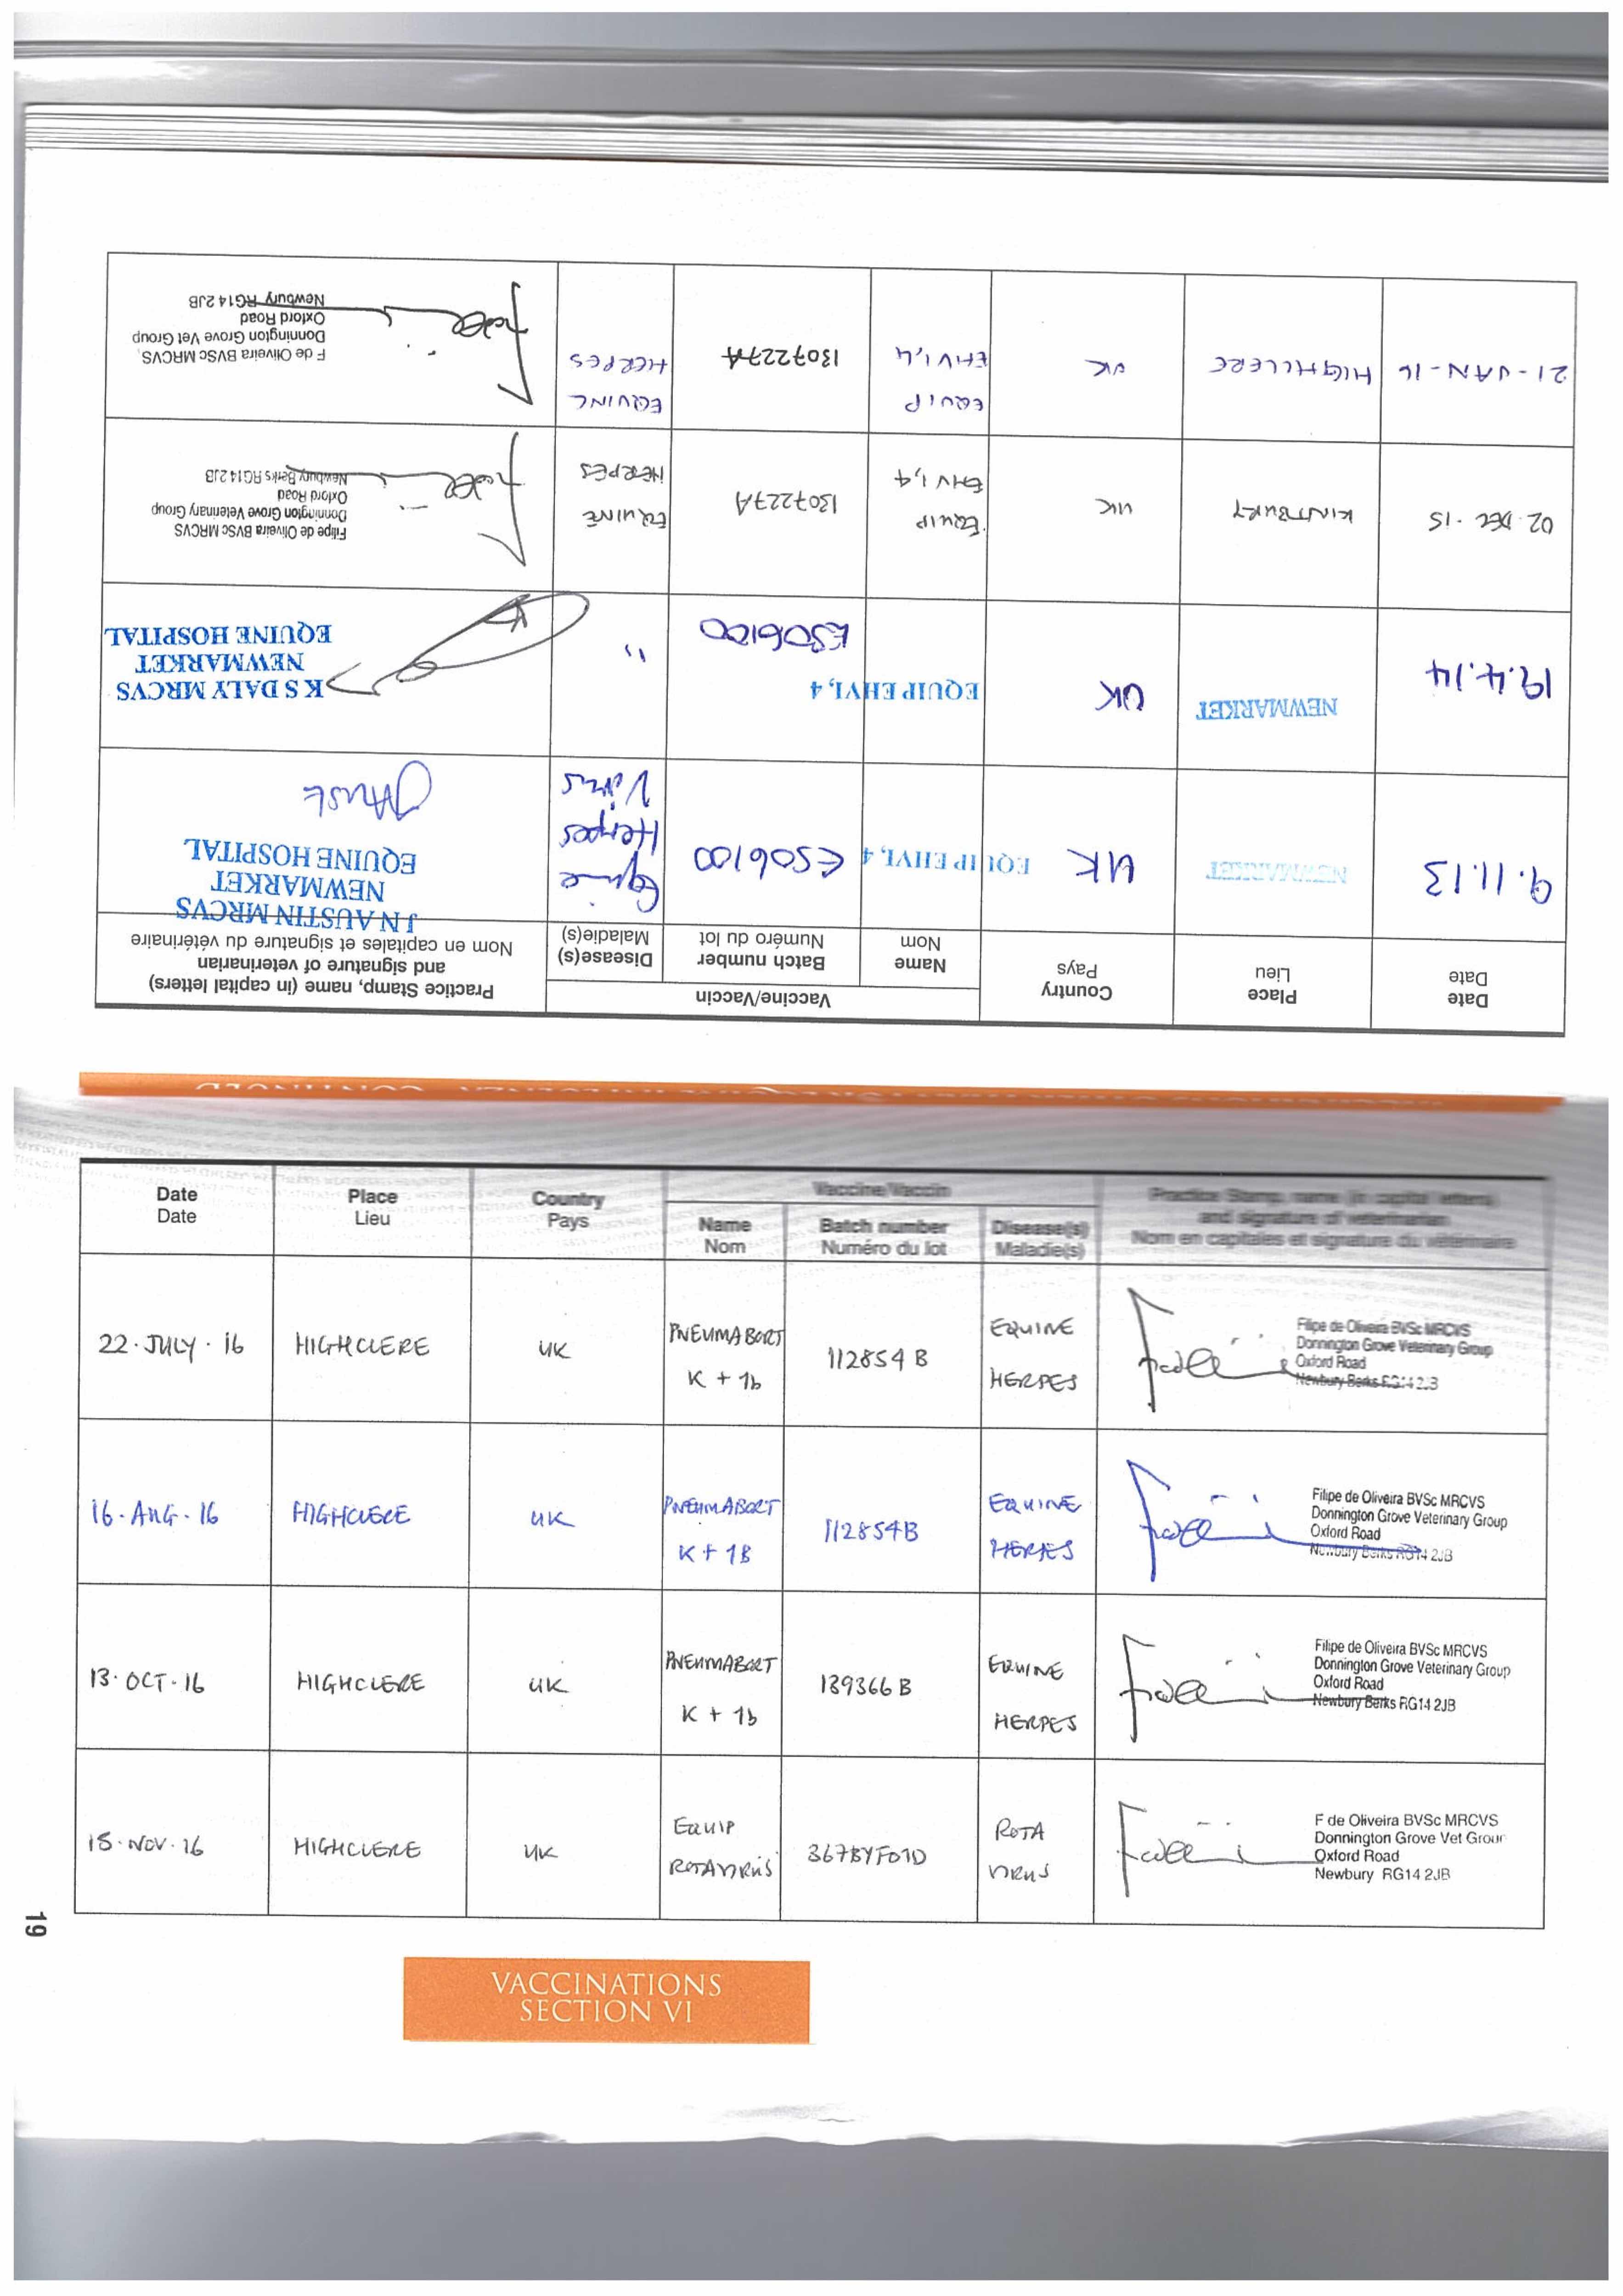 Date
Date
Place
Lieu
Country
Pays
Vaccine/Vaccin
Name
Nom
Batch number
Numéro du lot
Disease(s)
Maladie(s)
Practice Stamp, name (in capital letters)
and signature of veterinarian
Nom en capitales et signature du vétérinaire
9.11.13
NEWMARKET
UK
EQUIP EHV1,4
ES06100
Equine
Herpes
Virus
J N AUSTIN MRCVS
NEWMARKET
EQUINE HOSPITAL
19.4.14
NEWMARKET
UK
EQUIP EHV1,4
ES06100
"
K S DALY MRCVS
NEWMARKET
EQUINE HOSPITAL
02 DEC · 15
KINTBURY
UK
EQUIP
EHV1,4
1307227A
EQUINE
HERPES
Filipe de Oliveira BVSc MRCVS
Donnington Grove Veterinary Group
Oxford Road
Newbury Berks RG14 2JB
21-JAN-16
HIGHCLERE
UK
EQUIP
EHV1,4
1307227A
EQUINE
HERPES
F de Oliveira BVSc MRCVS
Donnington Grove Vet Group
Oxford Road
Newbury RG14 2JB
Date
Date
Place
Lieu
Country
Pays
Vaccine/Vaccin
Name
Nom
Batch number
Numéro du lot
Disease(s)
Maladie(s)
Practice Stamp, name (in capital letters)
and signature of veterinarian
Nom en capitales et signature du vétérinaire
22·JULY·16
HIGHCLERE
UK
PNEUMABORT
K + 1b
112854 B
EQUINE
HERPES
Filipe de Oliveira BVSc MRCVS
Donnington Grove Veterinary Group
Oxford Road
Newbury Berks RG14 2JB
16·AUG·16
HIGHCLERE
UK
PNEUMABORT
K + 1B
112854B
EQUINE
HERPES
Filipe de Oliveira BVSc MRCVS
Donnington Grove Veterinary Group
Oxford Road
Newbury Berks RG14 2JB
13·OCT·16
HIGHCLERE
UK
PNEUMABORT
K + 1b
139366 B
EQUINE
HERPES
Filipe de Oliveira BVSc MRCVS
Donnington Grove Veterinary Group
Oxford Road
Newbury Berks RG14 2JB
15·NOV·16
HIGHCLERE
UK
EQUIP
ROTAVIRUS
ROTA
VIRUS
F de Oliveira BVSc MRCVS
Donnington Grove Vet Group
Oxford Road
Newbury RG14 2JB
19
VACCINATIONS
SECTION VI